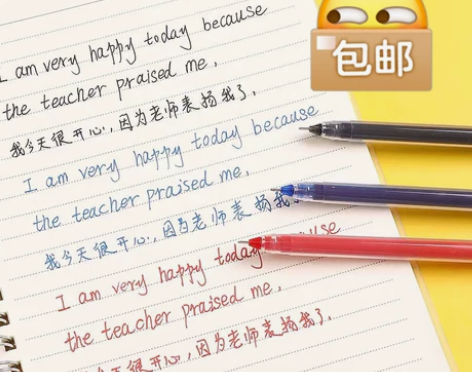 I am very happy today because
the teacher praised me.
我今天很开心,因为老师表扬我了.
I am very happy today because
the teacher praised me.
我今天很开心,因为老师表扬我
I am very happy today because
the teacher praised me.
今天很开心,因为老师表扬我了.
包邮